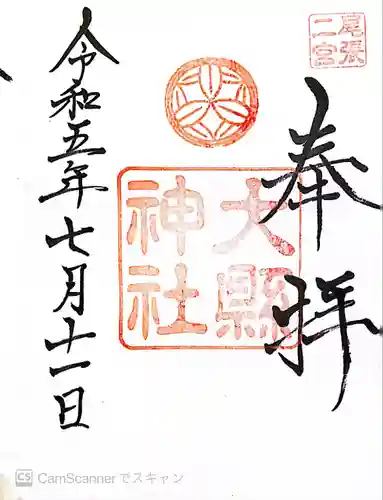 尾張
二宮
奉拝
大縣
神社
令和五年七月十一日
CS CamScannerでスキャン